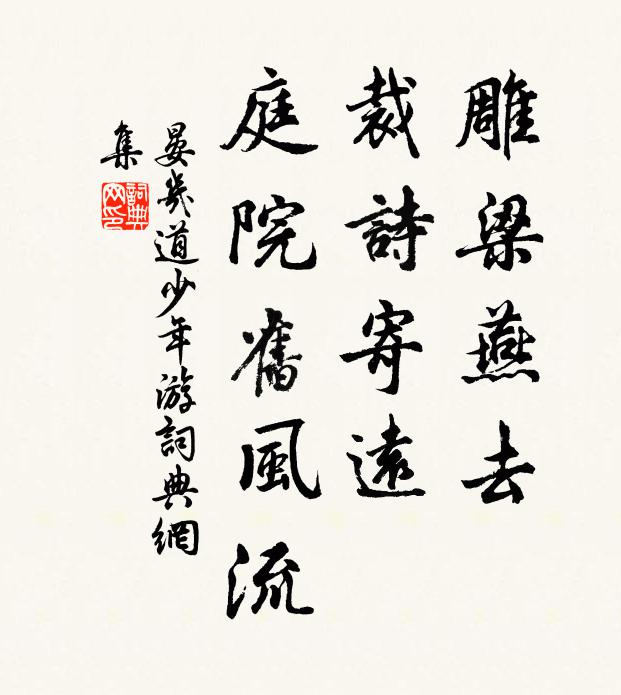 雕梁燕去
裁詩寄遠
庭院舊風流
晏幾道少年游詞典網
集
詞典
网印